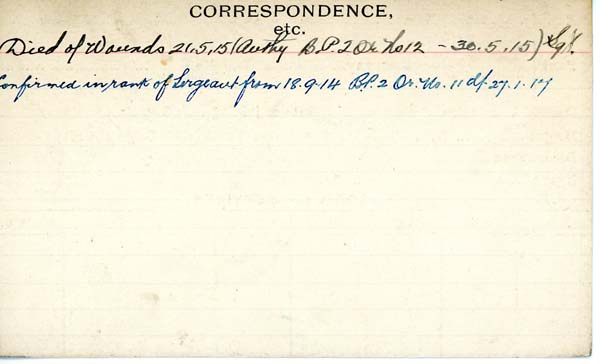 CORRESPONDENCE,
etc.
Died of Wounds 21.5.15 (Authy B.P. 2 Or. No 12 - 30.5.15)
Confirmed in rank of Sergeant from 18.9.14 B.P. 2 Or. No. 11 d/ 27.1.17